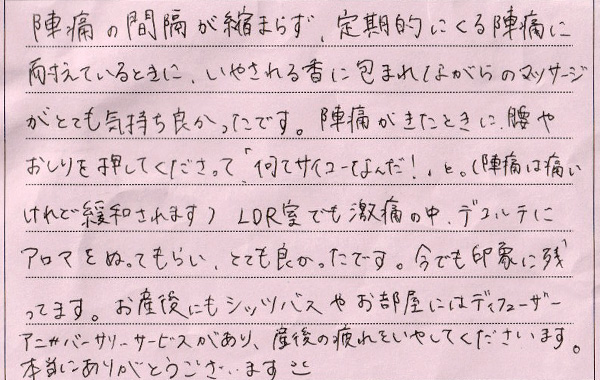 陣痛の間隔が縮まらず、定期的にくる陣痛に
耐えているときに、いやされる香に包まれながらのマッサージ
がとても気持ち良かったです。陣痛がきたときに、腰や
おしりを押してくださって「何てサイコーなんだ!」と。(陣痛は痛い
けれど緩和されます) LDR室でも激痛の中、デコルテに
アロマをぬってもらい、とても良かったです。今でも印象に残
ってます。お産後にもシッツバスやお部屋にはディフューザー
アニバーサリーサービスがあり、産後の疲れをいやしてくださいます。
本当にありがとうございます